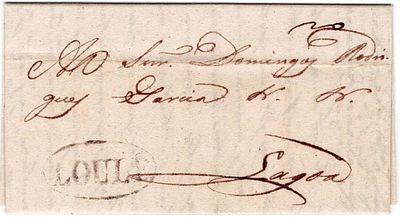 Ao Snr. Domingos Rodri-
gues Garcia V. V.
LOULÉ
Lagoa